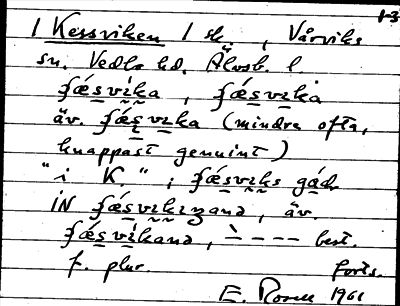 1-3
1 Kessviken 1 sk , Vårviks
sn. Vedbo hd. Älvsb. l.
ʃǽsvika , ʃǽsvika
äv. ʃǽsvika (mindre ofta,
knappast genuint)
"i K." ; ʃæsviks
iN , äv.
ʃǽsvikana , `---- best.
f. plur. forts.
E. Rosell 1961